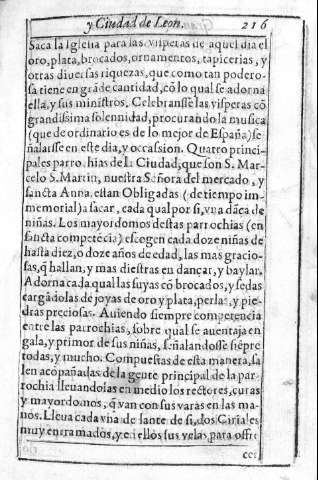 y Ciudad de Leon. 216
Saca la Iglesia para las visperas de aquel dia el
oro, plata, brocados, ornamentos, tapicerias, y
otras diuersas riquezas, que como tan podero-
sa tiene en grãde cantidad, cõ lo qual se adorna
ella, y sus ministros. Celebransse las visperas cõ
grandissima solennidad, procurando la musica
(que de ordinario es de lo mejor de España) se
ñalarsse en este dia, y occassion. Quatro princi-
pales parrochias de la Ciudad, que son S. Mar-
celo S. Martin, nuestra Señora del mercado, y
sancta Anna. estan Obligadas (de tiempo im-
memorial) a sacar, cada qual por si, vna dãça de
niñas. Los mayordomos destas parrochias (en
sancta competẽcia) escogen cada doze niñas de
hasta diez, o doze años de edad, las mas gracio-
sas, q̃ hallan, y mas diestras en dançar, y baylar.
Adorna cada qual las suyas cõ brocados, y sedas
cargãdolas de joyas de oro y plata, perlas, y pie-
dras preciosas. Auiendo siempre competencia
entre las parrochias, sobre qual se auentaja en
gala, y primor de sus niñas, señalandosse siẽpre
todas, y mucho. Compuestas de esta manera, sa
len acopañadas de la gente principal de la par-
rochia lleuandolas en medio los rectores, curas
y mayordomos, q̃ van con sus varas en las ma-
nos. Lleua cada vna de lante de si, dos Ciriales
muy enrramados, y en ellos sus velas, para offre